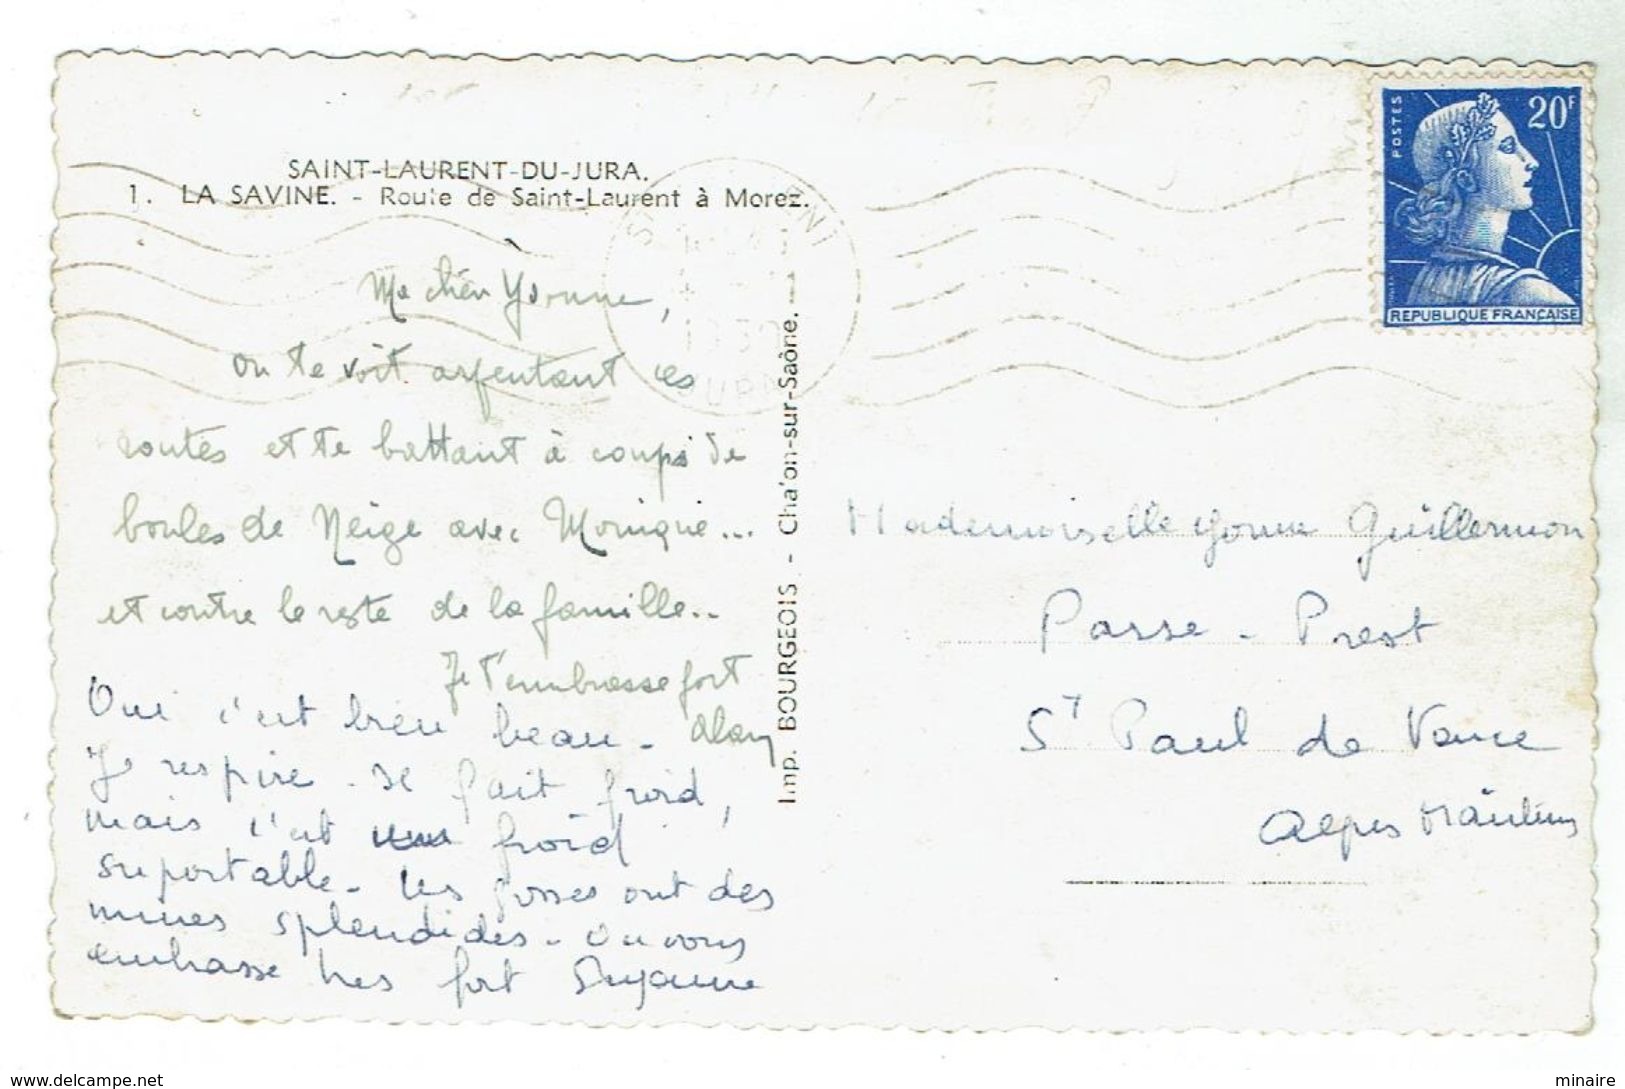 SAINT-LAURENT-DU-JURA.
1. LA SAVINE. - Route de Saint-Laurent à Morez.
Ma chère Yvonne,
on te voit arpentant les
routes et te battant à coups de
boules de Neige avec Monique...
et contre le reste de la famille..
Je t'embrasse fort
Oui c'est bien beau -
Je respire - Il fait froid,
mais c'est un froid
suportable - Les gosses ont des
mines splendides - On vous
embrasse tres fort Suzanne
Imp. BOURGEOIS. - Chalon-sur-Saône.
POSTES
20F
REPUBLIQUE FRANÇAISE
Mademoiselle Yvonne Guillermon
Passe - Prest
St Paul de Vence
Alpes Maritimes
www.delcampe.net
minaire